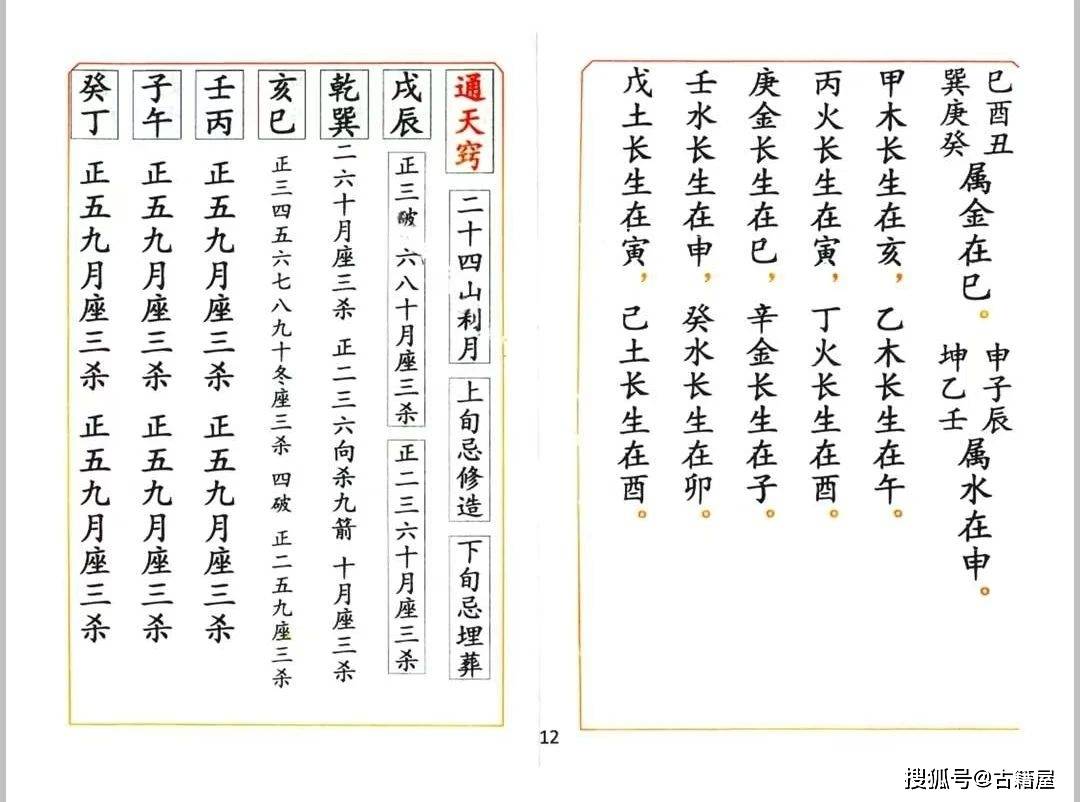 巳酉丑
巽庚癸
属金在巳。
申子辰
坤乙壬
属水在申。
甲木长生在亥，乙木长生在午。
丙火长生在寅，丁火长生在酉。
庚金长生在巳，辛金长生在子。
壬水长生在申，癸水长生在卯。
戊土长生在寅，己土长生在酉。
通天窍 二十四山利月 上旬忌修造 下旬忌埋葬
戌辰 正三破 六八十月座三杀 正二三六十月座三杀
乾巽 二六十月座三杀 正二三六向杀九箭 十月座三杀
亥巳 正三四五六七八九十冬座三杀 四破 正二五九座三杀
壬丙 正五九月座三杀 正五九月座三杀
子午 正五九月座三杀 正五九月座三杀
癸丁 正五九月座三杀 正五九月座三杀
12
搜狐号@古籍屋